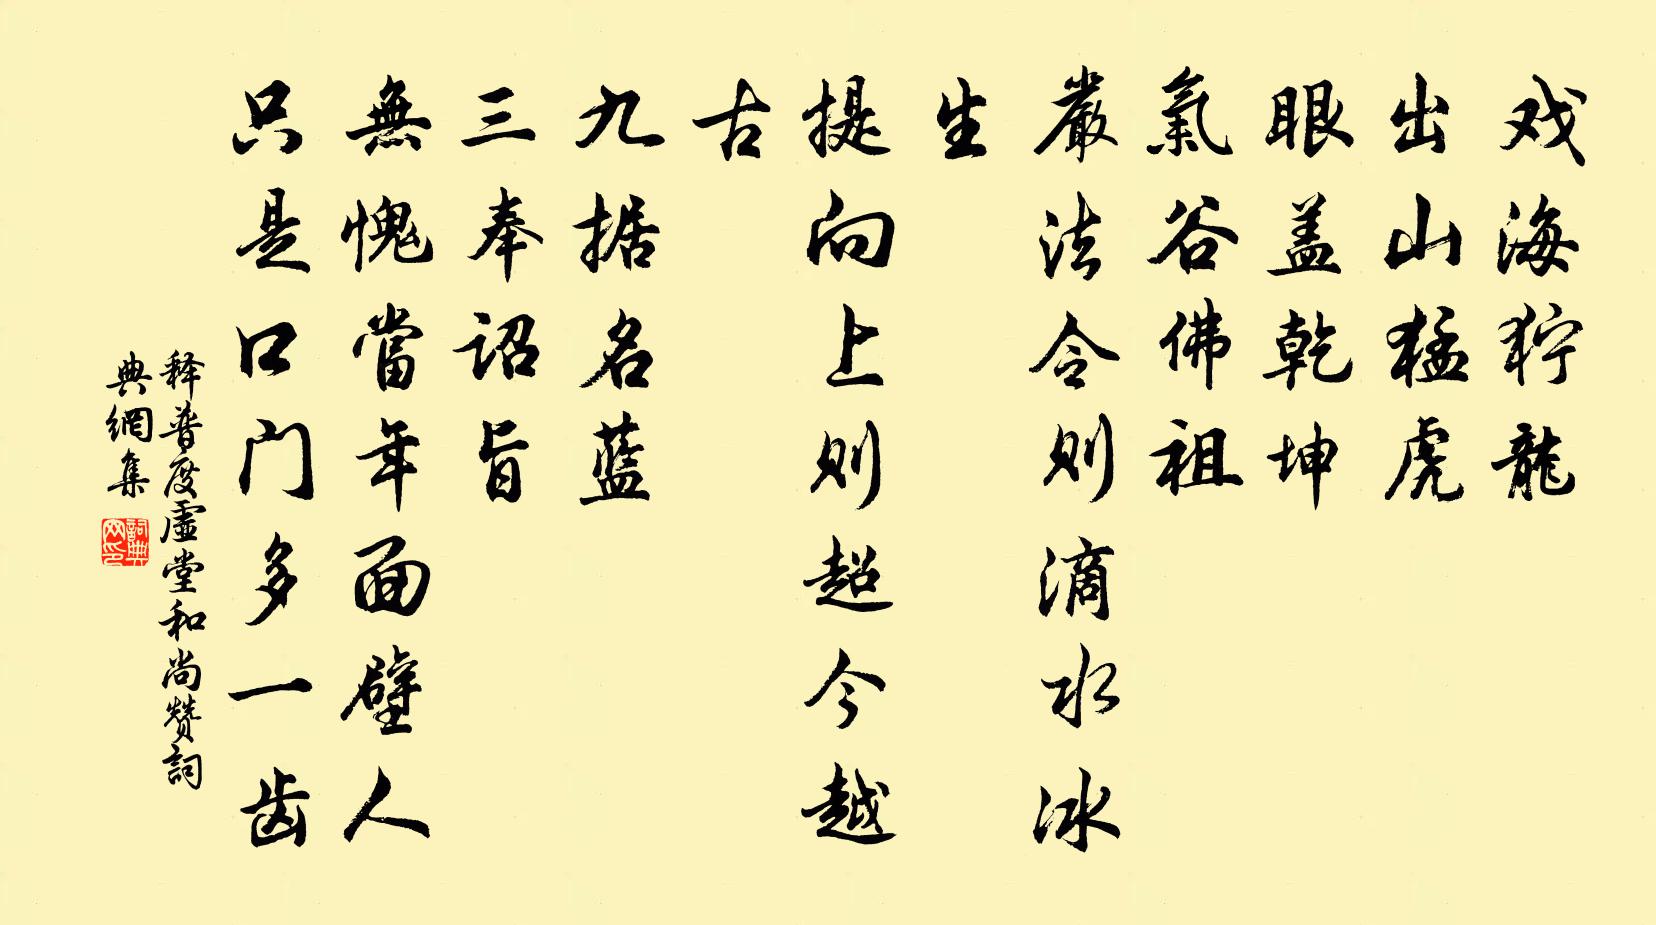 戏海狞龍
出山猛虎
眼盖乾坤
氣谷佛祖
嚴法令则滴水冰
生
提向上则超今越
古
九据名藍
三奉诏旨
無愧當年面壁人
只是口门多一齿
释普度虚堂和尚赞詞
典網集
詞典网印